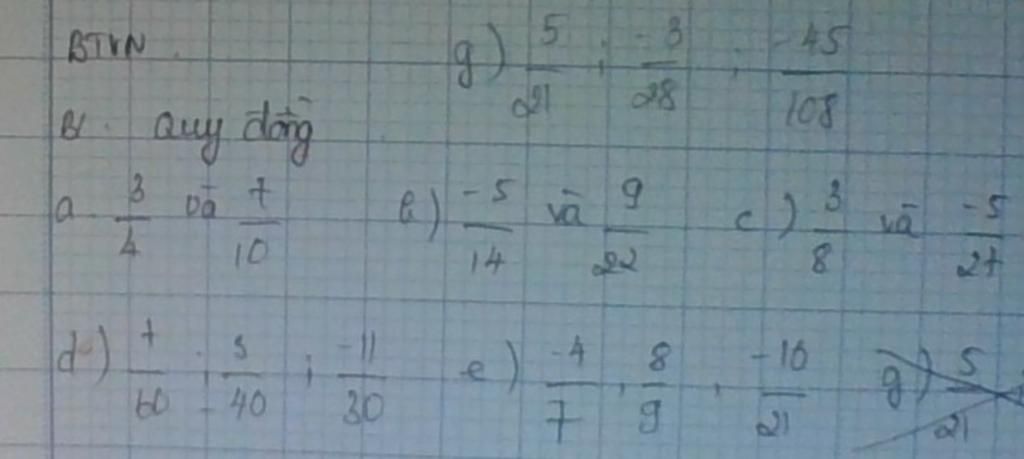 BTVN. g) 5/21 ; -3/28 ; -45/108
B1. Quy đồng
a. 3/4 và 7/10 b) -5/14 và 9/22 c) 3/8 và -5/27
d) 7/60 ; /-40 ; -11/30 e) -4/7 , 8/9 , -10/21 g) 5/21